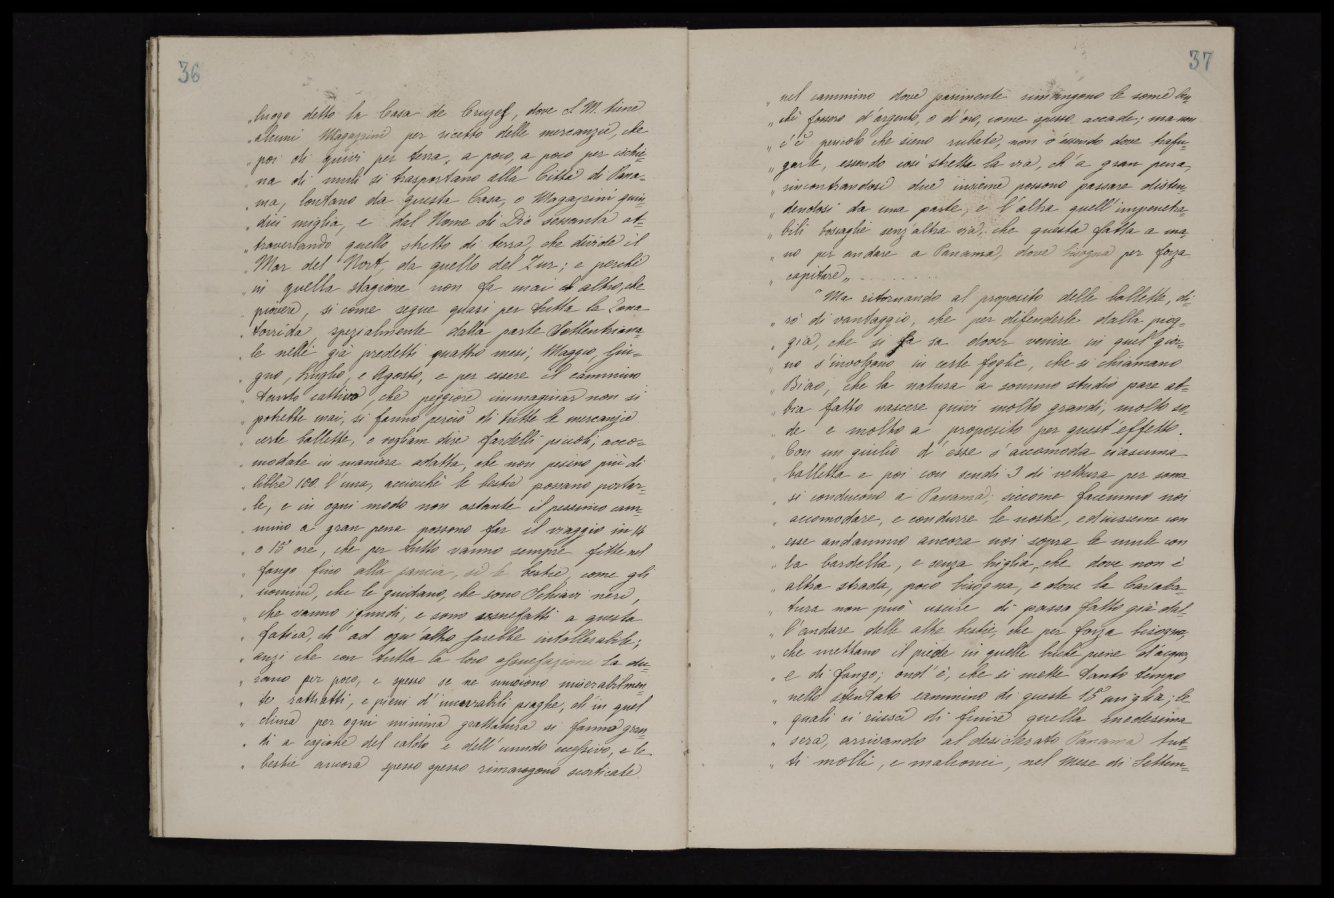 36
„luogo detto la Casa de Cruzes, dove S. M. tiene
„alcuni Magazzini per ricetto delle mercanzie, che
„poi di quivi per terra, a poco, a poco per ischie=
„na di muli si trasportano alla Città di Pana=
„ma, lontano da questa Casa, o Magazzini quin=
„dici miglia, e del Nome di Dio sessanta at=
„traversando quello stretto di terra, che divide il
„Mar del Nort, da quello del Zur; e perchè
„in quella stagione non fa mai altro, che
„piovere, si come segue quasi per tutta la Zona
„torrida, spezialmente dalla parte Settentriona=
„le nelli già predetti quattro mesi, Maggio, Giu=
„gno, Luglio, e Agosto, e per essere il cammino
„tanto cattivo che peggiore immaginar non si
„potrebbe mai, si fanno perciò di tutte le mercanzie
„certe ballette, o vogliam dire fardelli piccoli, acco=
„modate in maniera adatta, che non pesino più di
„libbre 100 l'una, acciochè le bestie possano portar=
„le, e in ogni modo non ostante il pessimo cam=
„mino a gran pena possono far il viaggio in 14
„o 15 ore, chè per tutto vanno sempre fitte nel
„fango fino alla pancia, sì le bestie, come gli
„uomini, che le guidano, che sono Schiavi neri,
„che vanno ignudi, e sono assuefatti a questa
„fatica, ch' ad ogn' altro sarebbe intollerabile;
„anzi che con tutta la loro assuefazione la du=
„rano per poco, e spesso se ne muoiono miserabilmen=
„te rattratti, e pieni d' incurabili piaghe, ch' in quel
„clima per ogni minima grattatura si fanno gran=
„di a cagione del caldo e dell' umido eccessivo, e le
„bestie ancora spesso spesso rimangono scorticate
37
„nel cammino dove parimente rimangono le some ben=
„chè fossero d' argento, o d' oro, come spesso accade; ma non
„c' è pericolo che sieno rubate, non v' essendo dove trafu=
„garle, essendo così stretta la via, ch' a gran pena,
„rincontrandosi due insieme possono passare disten=
„dendosi da una parte, e l' altra quell' impenetra=
„bili boscaglie senz' altra via, che questa fatta a ma=
„no per andare a Panama, dove bisogna per forza
„capitare„ . . . . . . . .
„Ma ritornando al proposito delle ballette, di=
„rò di vantaggio, che per difenderle dalla piog=
„gia, che si sa dover venire in quel gior=
„no s' involtano in certe foglie, che si chiamano
„Biao, che la natura a sommo studio pare ab=
„bia fatto nascere quivi molto grandi, molto so=
„de e molto a proposito per quest' effetto.
„Con un giulio d' esse s' accomoda ciascuna
„balletta e poi con scudi 3 di vettura per soma
„si conducono a Panama, siccome facemmo noi
„accomodare, e condurre le nostre, ed insieme con
„esse andammo ancora noi sopra le mule con
„la bardella, e senza briglia, che dove non è
„altra strada, poco bisogna, e dove la Cavalca=
„tura non può uscire di passo fatto già dal=
„l' andare delle altre bestie, che per forza bisogna,
„che mettano il piede in quelle buche piene d' acqua,
„e di fango; ond' è, che si mette tanto tempo
„nello stentato cammino di queste 15 miglia; le
„quali ci riuscì di finire quella medesima
„sera, arrivando al desiderato Panama tut=
„ti molli, e malconci, nel Mese di Settem=